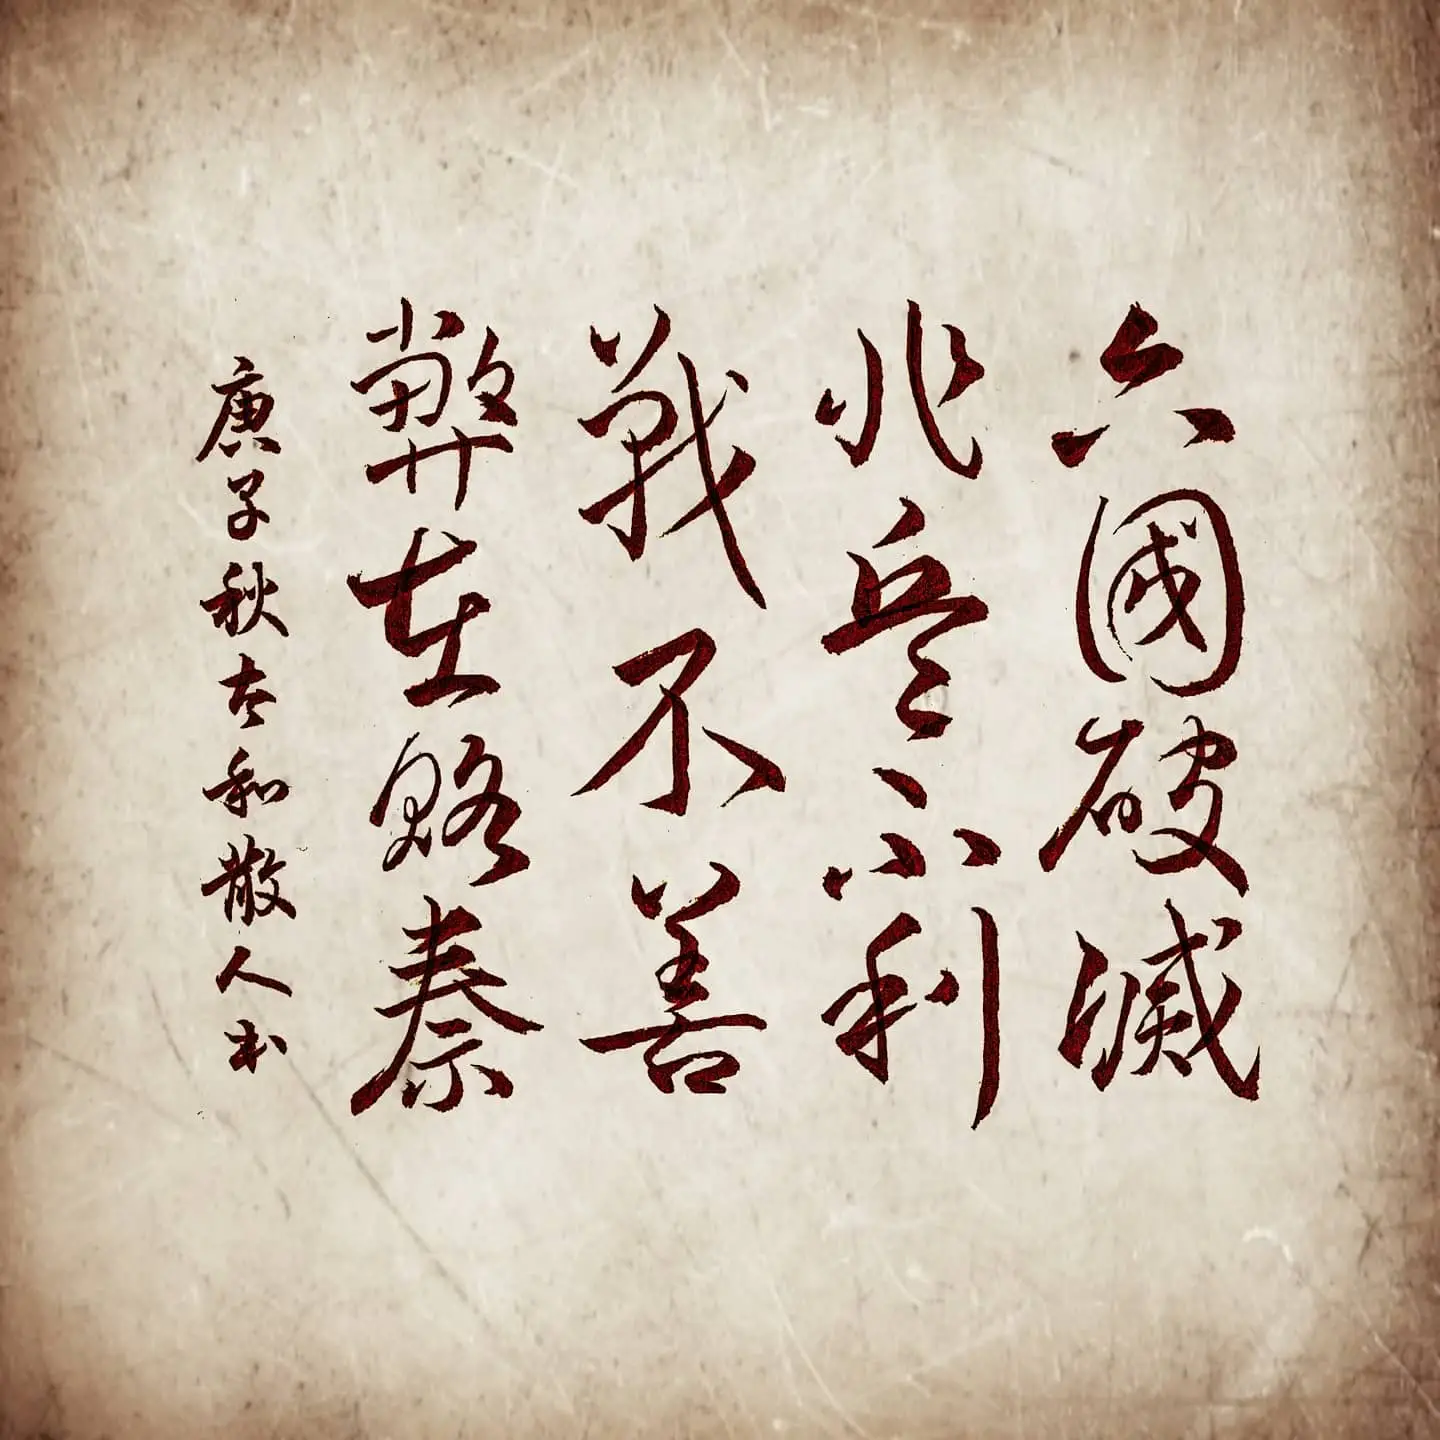 六國破滅
非兵不利
戰不善
弊在賂秦
庚子秋太和散人书